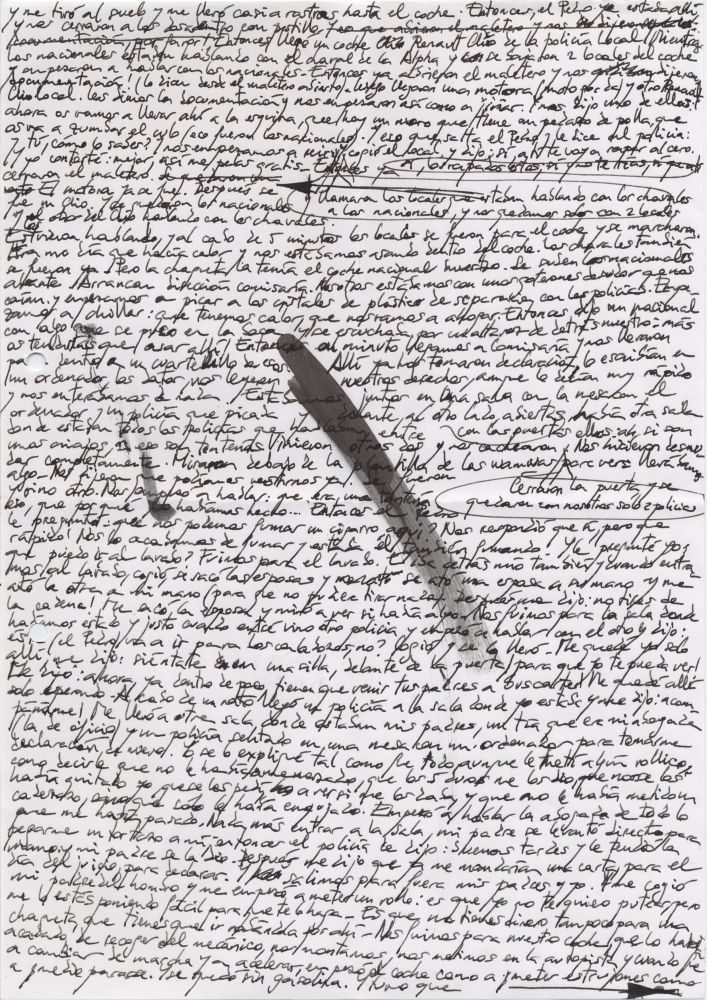 y me tiró al suelo y me llevó casi a rastras hasta el coche. Entonces, el Pelao ya estaba allí
y nos cerraron a los dos dentro con pestillo
documentación, por favor! Entonces llegó un coche Clio Renault Clio de la policía local. Mientras
los nacionales estaban hablando con el chaval de la Alpha y se bajaron 2 locales del coche
y empezaron a hablar con los nacionales. Entonces ya abrieron el maletero y nos dijeron:
documentación! (lo dicen desde el maletero abierto). Luego llegaron una motora (moto por ) y otro Renault
Clio local. Les dimos la documentación y nos empezaron así como a vacilar. Y nos dijo uno de ellos:
ahora os vamos a llevar ahí a la esquina, que hay un moro que tiene un pecado de polla, que
os va a zumbar el culo (eso fueron los nacionales). Y eso que salta el Pelao y le dice del policía:
y tú, cómo lo sabes? Y nos empezamos a reír y cogió el local y dijo: sí, a ti te voy a rapar al cero.
Y yo contesté: mejor, así me pelas gratis. Entonces ya
cerraron el maletero.
El motora ya se fue. Después se llamaron los locales que estaban hablando con los chavales
fue un Clio. a los nacionales, y nos quedamos solos con 2 locales
y el otro del Clio hablando con los chavales.
Estuvieron hablando, y al cabo de 5 minutos los locales se fueron para el coche y se marcharon.
Era un día que hacía calor y nos estábamos asando dentro del coche. Los chavales también
se fueron ya. Pero la chaqueta la tenía el coche nacional. Se suben los nacionales
alante. Arrancan dirección comisaría. Nosotros estábamos con unos goterones de sudor que nos
caían, y empezamos a picar a los cristales de plástico de separación con los policías. Empe-
zamos a chillar: que tenemos calor, que nos vamos a ahogar. Entonces dijo un nacional
con algo que se puso en la boca y se escuchaba por el altavoz de detrás nuestro: más
os tendríais que asar allí! Entonces al minuto llegamos a comisaría y nos llevaron
para dentro a un cuartelillo de esos. Allí ya nos tomaron declaración, lo escribían en
un ordenador, los datos, nos leyeron nuestros derechos, aunque lo decían muy rápido
y nos enterábamos de nada. Estábamos juntos en una sala con la mesa con el
ordenador, y un policía que picaba y delante, al otro lado, abiertas, había otra sala
donde estaban todos los policías que hablaban entre con las puertas
ellos: ah, si son
unos críajos, si eso son tonterías! Vinieron otros dos y nos cachearon y nos hicieron desnu-
dar completamente. Miraron debajo de la plantilla de las wambas para ver si llevábamos
algo. Nos dijeron que podíamos vestirnos ya y se fueron. Cerraron la puerta y se
quedaron con nosotros solo 2 policías
Y vino otro. Nos empezó a hablar: que era una tontería
eso, que por qué lo habíamos hecho... Entonces el Pelao
le preguntó: que nos podemos fumar un cigarro aquí? Nos respondió que sí, pero que
rápido! Nos lo acabamos de fumar y estaba él también fumando. Y le pregunté yo:
que puedo ir al lavabo? Fuimos para el lavabo. El Pelao vino también y cuando entra-
mos, al lavabo, cogió, se sacó las esposas y se ató una esposa a su mano y me
ató la otra a mi mano (para que no pudiese tirar nada). Después me dijo: no tires de
la cadena! Me sacó la esposa y miró a ver si había algo. Nos fuimos para la sala donde
habíamos estado y justo cuando entré vino otro policía y empezó a hablar con el otro y dijo:
este (el Pelao) va a ir para los calabozos, no? Cogió y se lo llevó. Me quedé yo solo
allí y me dijo: siéntate en una silla, delante de la puerta, para que yo te pueda ver!
Me dijo: ahora, ya dentro de poco, tienen que venir tus padres a buscarte! Me quedé allí
solo esperando. Al cabo de un rato llegó un policía a la sala donde yo estaba y me dijo: acom-
páñame! Me llevó a otra sala donde estaban mis padres, una tía que era mi abogada
(la de oficio) y un policía sentado en una mesa con un ordenador para tomarme
declaración, de nuevo. Yo se lo expliqué tal como fue todo aunque le metí algún rollico,
como decirle que no le había amenazado, que los 5 duros me los dio, que no se los
había quitado yo, que se los pedí, a ver si me los daba, y que no le había metido un
cabezazo, sino que solo le había empujado. Empezó a hablar la abogada de todo lo
que me había pasado. Nada más entrar a la sala, mi padre se levantó directo para
pegarme un tortazo a mí; entonces el policía le dijo: buenas tardes y le tendió la
mano, y mi padre se la dio. Después me dijo que ya me mandarían una carta para el
día del juicio para declarar. salimos para fuera mis padres y yo. Y me cogió
mi padre del hombro y me empezó a meter un rollo: es que yo no te quiero putear, pero
me lo estás poniendo fácil para que te lo haga. Es que no tienes dinero tampoco para una
chaqueta que tienes que ir robándola por ahí. Nos fuimos para nuestro coche, que lo había
acabado de recoger del mecánico, nos montamos, nos metimos en la autopista y cuando fue
a cambiar de marcha y a acelerar, empezó el coche como a meter estrujones como
a quedar parado. Y se quedó sin gasolina. Y tuvo que